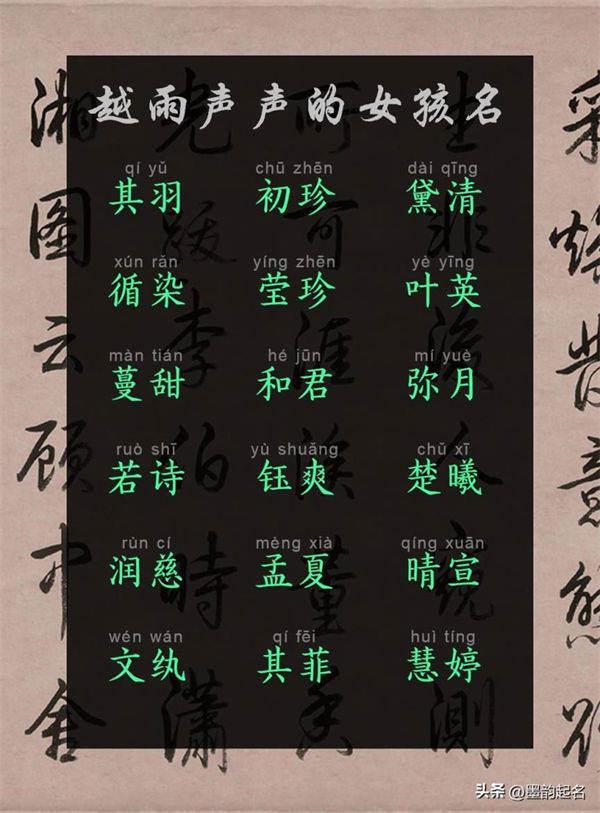 越雨声声的女孩名
qí yǔ chū zhēn dài qīng
其羽 初珍 黛清
xún rǎn yíng zhēn yè yīng
循染 莹珍 叶英
màn tián hé jūn mí yuè
蔓甜 和君 弥月
ruò shī yù shuǎng chǔ xī
若诗 钰爽 楚曦
rùn cí mèng xià qíng xuān
润慈 孟夏 晴宣
wén wán qí fēi huì tíng
文纨 其菲 慧婷
湘图云顾中金
头条 @墨韵起名